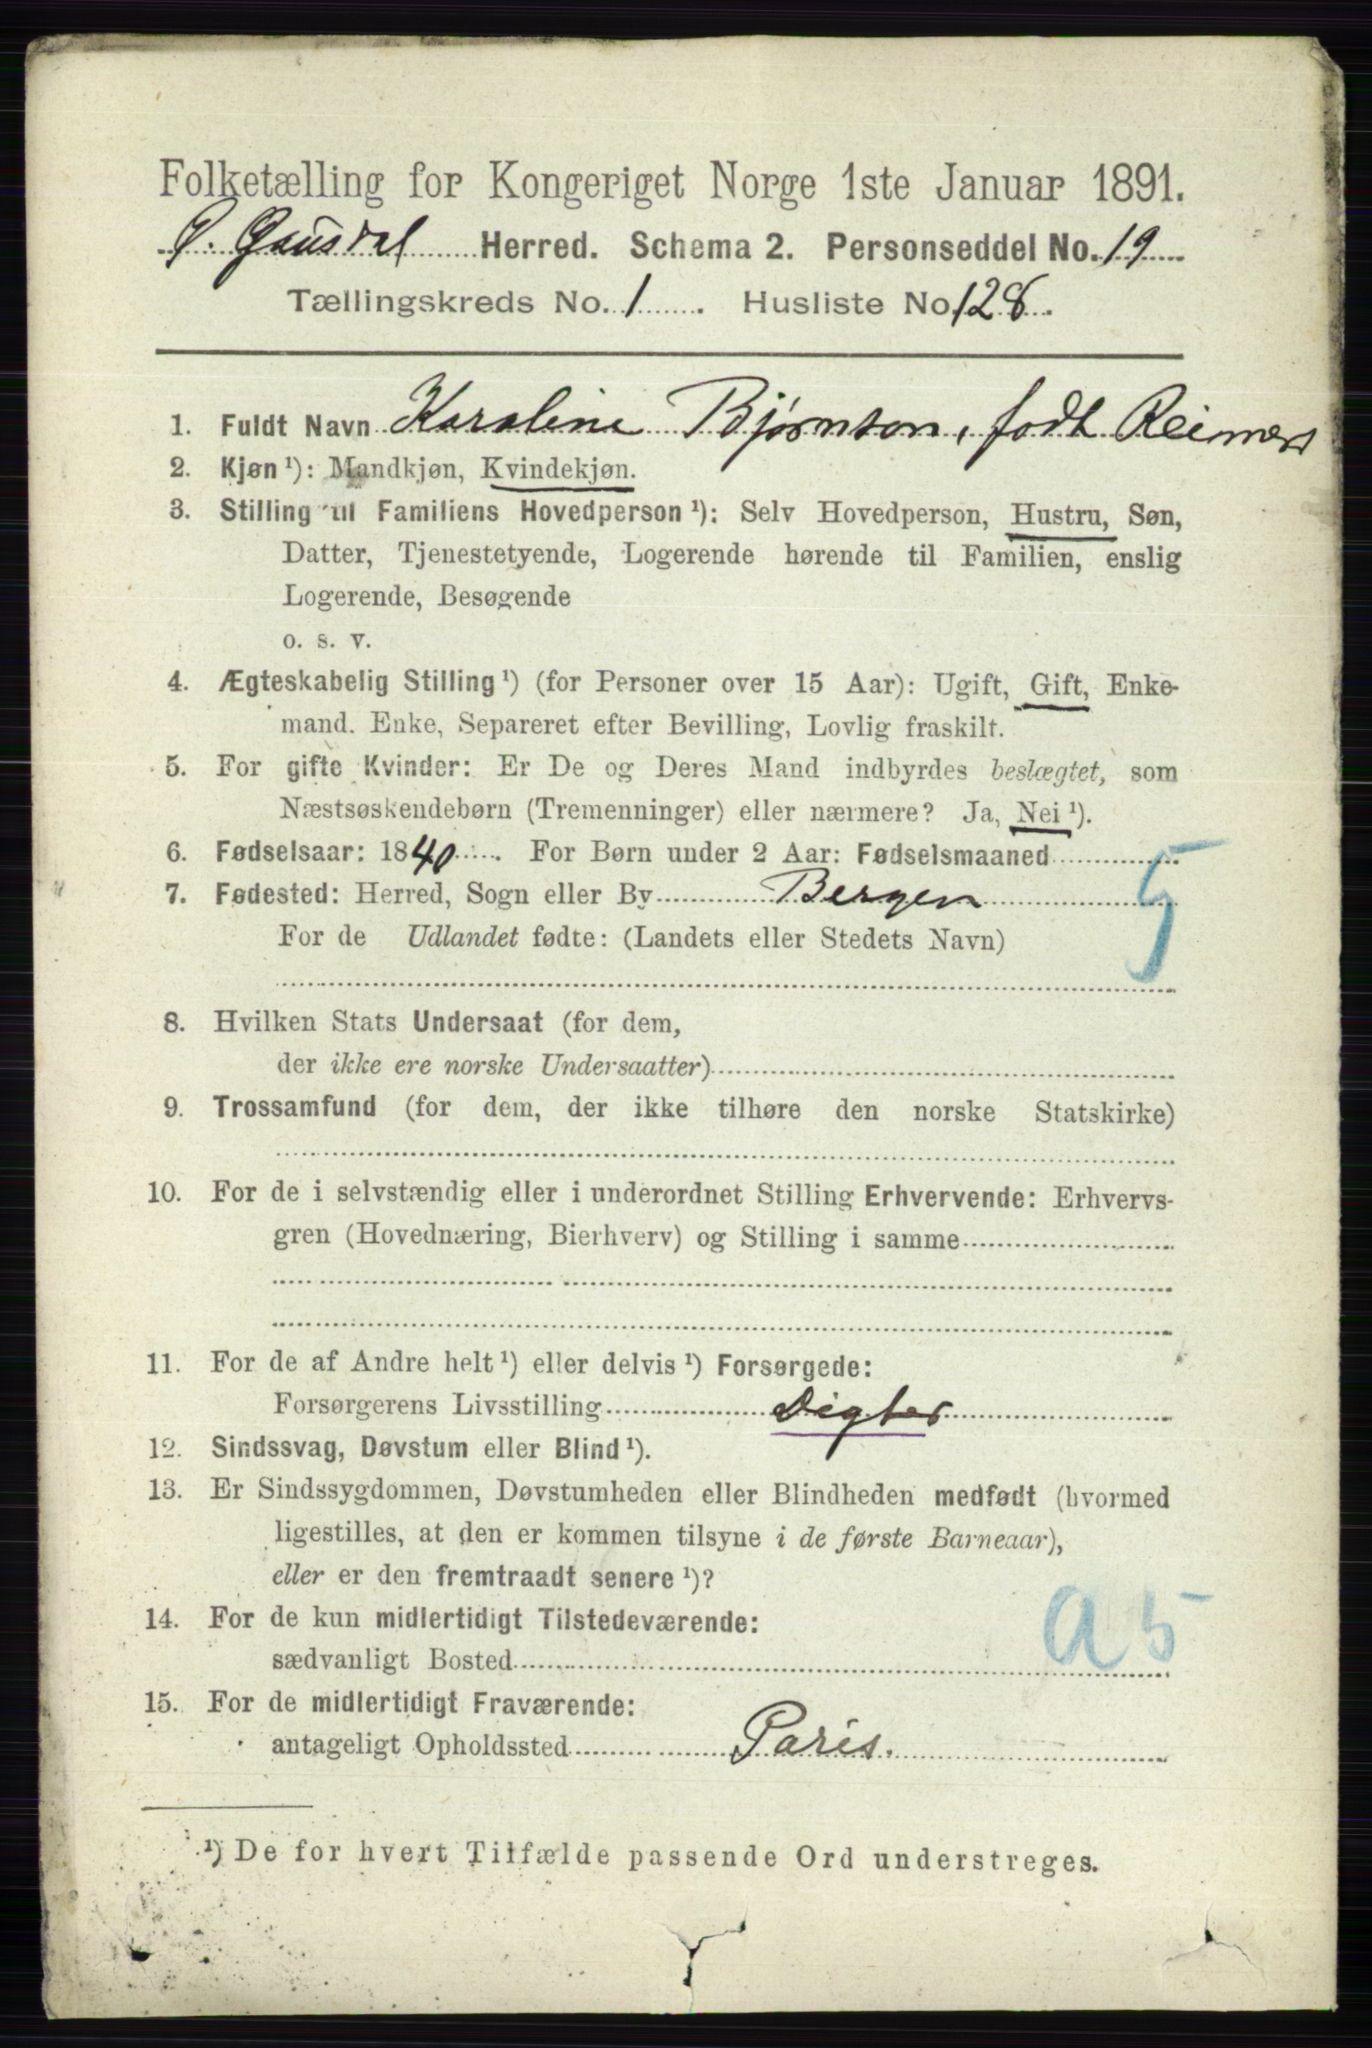 Folketælling for Kongeriget Norge 1ste Januar 1891.
Ø. Gausdal Herred. Schema 2. Personseddel No. 19
Tællingskreds No. 1. Husliste No 128.
1. Fuldt Navn Karoline Bjørnson, født Reimers
2. Kjøn ¹): Mandkjøn, Kvindekjøn.
3. Stilling til Familiens Hovedperson ¹): Selv Hovedperson, Hustru, Søn,
Datter, Tjenestetyende, Logerende hørende til Familien, enslig
Logerende, Besøgende
o. s. v.
4. Ægteskabelig Stilling ¹) (for Personer over 15 Aar): Ugift, Gift, Enke-
mand. Enke, Separeret efter Bevilling, Lovlig fraskilt.
5. For gifte Kvinder: Er De og Deres Mand indbyrdes beslægtet, som
Næstsøskendebørn (Tremenninger) eller nærmere? Ja, Nei ¹).
6. Fødselsaar: 1840. For Børn under 2 Aar: Fødselsmaaned
7. Fødested: Herred, Sogn eller By Bergen 5
For de Udlandet fødte: (Landets eller Stedets Navn)
8. Hvilken Stats Undersaat (for dem,
der ikke ere norske Undersaatter)
9. Trossamfund (for dem, der ikke tilhøre den norske Statskirke)
10. For de i selvstændig eller i underordnet Stilling Erhvervende: Erhvervs-
gren (Hovednæring, Bierhverv) og Stilling i samme
11. For de af Andre helt ¹) eller delvis ¹) Forsørgede:
Forsørgerens Livsstilling Digter
12. Sindssvag, Døvstum eller Blind ¹).
13. Er Sindssygdommen, Døvstumheden eller Blindheden medfødt (hvormed
ligestilles, at den er kommen tilsyne i de første Barneaar),
eller er den fremtraadt senere ¹)?
14. For de kun midlertidigt Tilstedeværende: a 5
sædvanligt Bosted
15. For de midlertidigt Fraværende:
antageligt Opholdssted Paris.
¹) De for hvert Tilfælde passende Ord understreges.